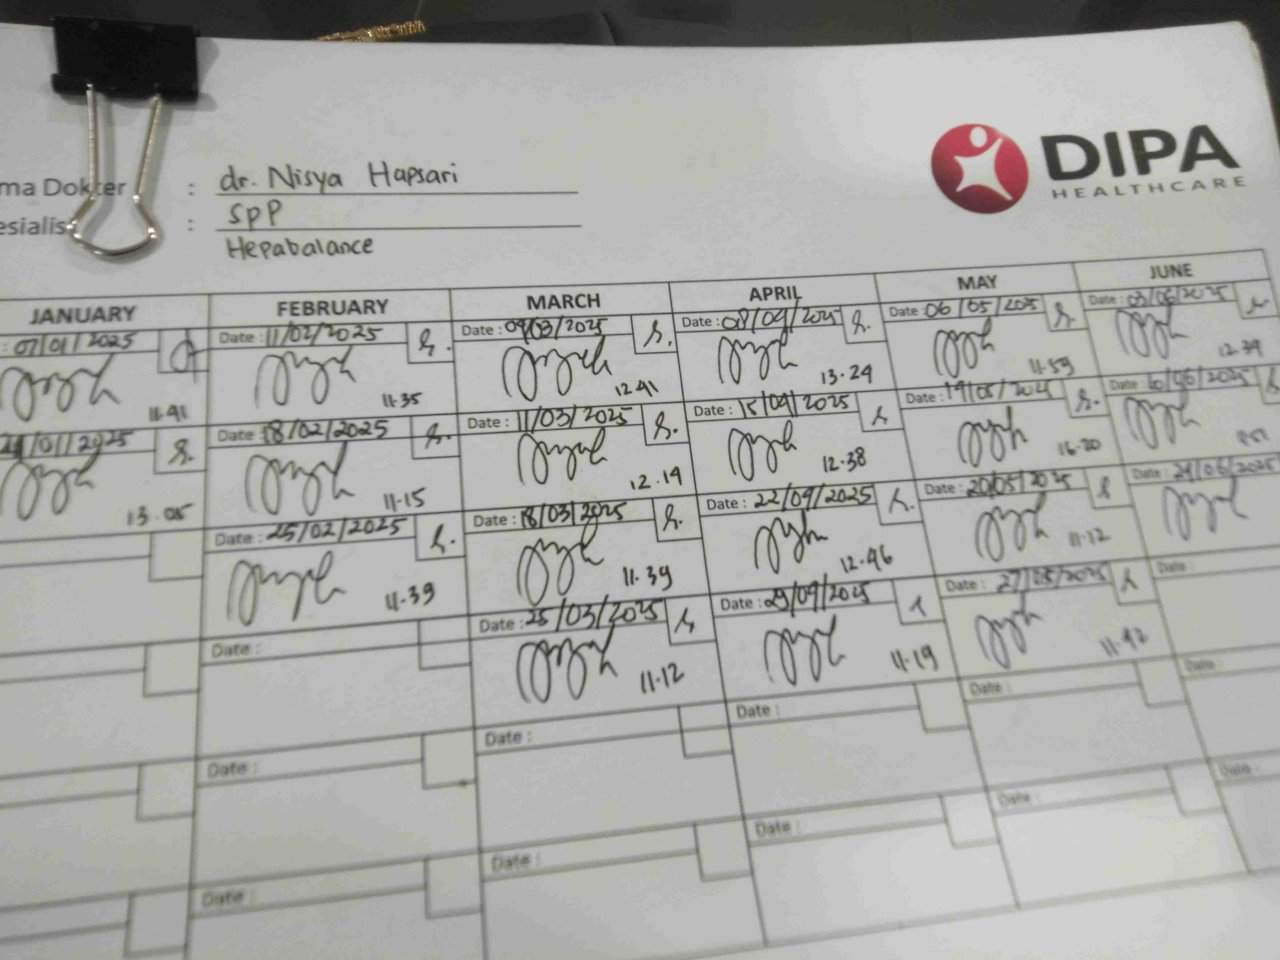 dr. Nisya Hapsari
ma Dokter :
DIPA
HEALTHCARE
esialis : SpP
Hepabalance
JANUARY FEBRUARY MARCH APRIL MAY JUNE
: 07/01/2025 Date : 11/02/2025 Date : 04/03/2025 Date : 08/04/2025 Date : 06/05/2025 Date : 03/06/2025
11.41 11.35 12.41 13.24 11.59 12.39
/01/2025 Date : 18/02/2025 Date : 11/03/2025 Date : 15/04/2025 Date : /05/2025 Date : 10/06/2025
13.05 11.15 12.14 12.38 16.20
Date : 25/02/2025 Date : 18/03/2025 Date : 22/04/2025 Date : 20/05/2025 Date : 24/06/2025
11.39 11.39 12.46 11.12
Date : Date : 25/03/2025 Date : 29/04/2025 Date : 27/05/2025 Date :
11.12 11.19 11.42
Date : Date : Date : Date : Date :
Date : Date : Date : Date : Date :